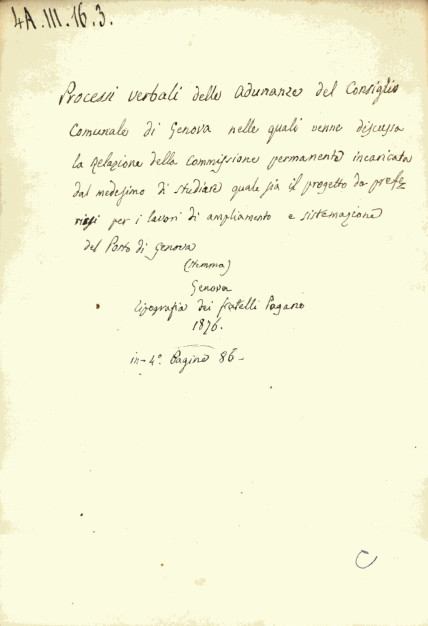 4A.III.16.3.
Processi verbali delle Adunanze del Consiglio
Comunale di Genova nelle quali venne discussa
la Relazione della Commissione permanente incaricata
dal medesimo di studiare quale sia il progetto da prefe
rirsi per i lavori di ampliamento e sistemazione
del Porto di Genova
(stemma)
Genova
tipografia dei fratelli Pagano
1876.
in-4º. Pagine 86-
C